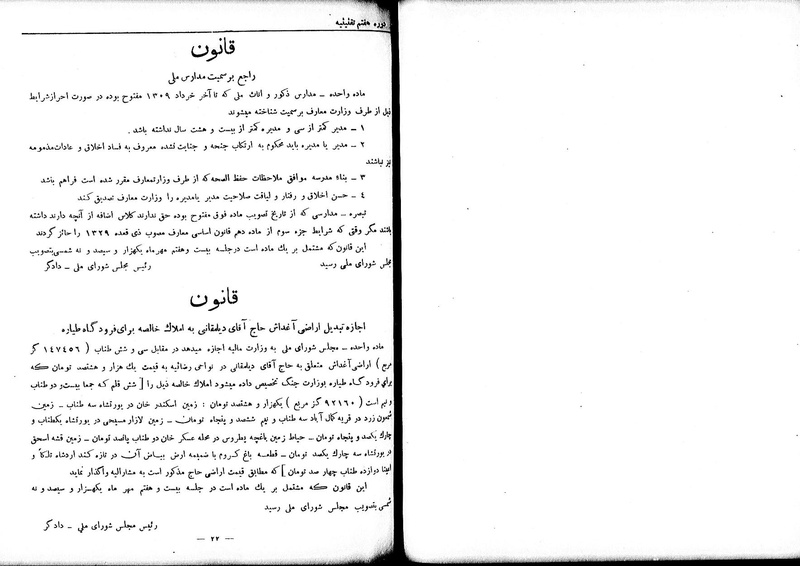 دوره هفتم تقنینیه
قانون
راجع برسمیت مدارس ملی
ماده واحده ـ مدارس ذکور و اناث ملی که تا آخر خرداد ۱۳۰۹ مفتوح بوده در صورت احراز شرایط
ذیل از طرف وزارت معارف برسمیت شناخته میشوند
۱ ـ مدیر کمتر از سی و مدیره کمتر از بیست و هشت سال نداشته باشد .
۲ ـ مدیر یا مدیره باید محکوم به ارتکاب جنحه و جنایت نشده معروف به فساد اخلاق و عادات مذمومه
نیز نباشند
۳ ـ بناء مدرسه موافق ملاحظات حفظ الصحه که از طرف وزارتمعارف مقرر شده است فراهم باشد
٤ ـ حسن اخلاق و رفتار و لیاقت صلاحیت مدیر یامدیره را وزارت معارف تصدیق کند
تبصره ـ مدارسی که از تاریخ تصویب ماده فوق مفتوح بوده حق ندارند کلاس اضافه از آنچه دارند داشته
باشند مگر وقتی که شرایط جزء سوم از ماده دهم قانون اساسی معارف مصوب ذی قعده ۱۳۲۹ را حائز گردند
این قانون که مشتمل بر یك ماده است درجلسه بیست وهفتم مهرماه یکهزار و سیصد و نه شمسی بتصویب
مجلس شورای ملی رسید رئیس مجلس شورای ملی ـ دادگر
قانون
اجازه تبدیل اراضی آغداش حاج آقای دیلمقانی به املاك خالصه برای فرودگاه طیاره
ماده واحده ـ مجلس شورای ملی به وزارت مالیه اجازه میدهد در مقابل سی و شش طناب ( ۱٤۷٤٥٦ گز
مربع ) اراضی آغداش متعلق به حاج آقای دیلمقانی در نواحی رضائیه به قیمت یك هزار و هشتصد تومان که
برای فرودگاه طیاره بوزارت جنگ تخصیص داده میشود املاك خالصه ذیل را [ شش قلم که جمعا بیست و دو طناب
و نیم است ( ۹۲۱٦۰ گز مربع ) یکهزار و هشتصد تومان : زمین اسکندر خان در یورتشاه سه طناب ـ زمین
شمعون زرد در قریه کمال آباد سه طناب و نیم ششصد و پنجاه تومان ـ زمین لازار مسیحی در یورتشاه یکطناب و
چارك یکصد و پنجاه تومان ـ حیاط زمین باغچه پطروس در محله عسکر خان دو طناب پانصد تومان ـ زمین قشه اسحق
در یورتشاه سه چارك یکصد تومان ـ قطعه باغ کروم با ضمیمه ارض بیاض آن در تازه کند اردشاه
دوازده طناب چهار صد تومان ] که مطابق قیمت اراضی حاج مذکور است به مشارالیه واگذار نماید
این قانون که مشتمل بر یك ماده است در جلسه بیست و هفتم مهر ماه یکهزار و سیصد و نه
شمسی بتصویب مجلس شورای ملی رسید
رئیس مجلس شورای ملی ـ دادگر
— ۲۲ —